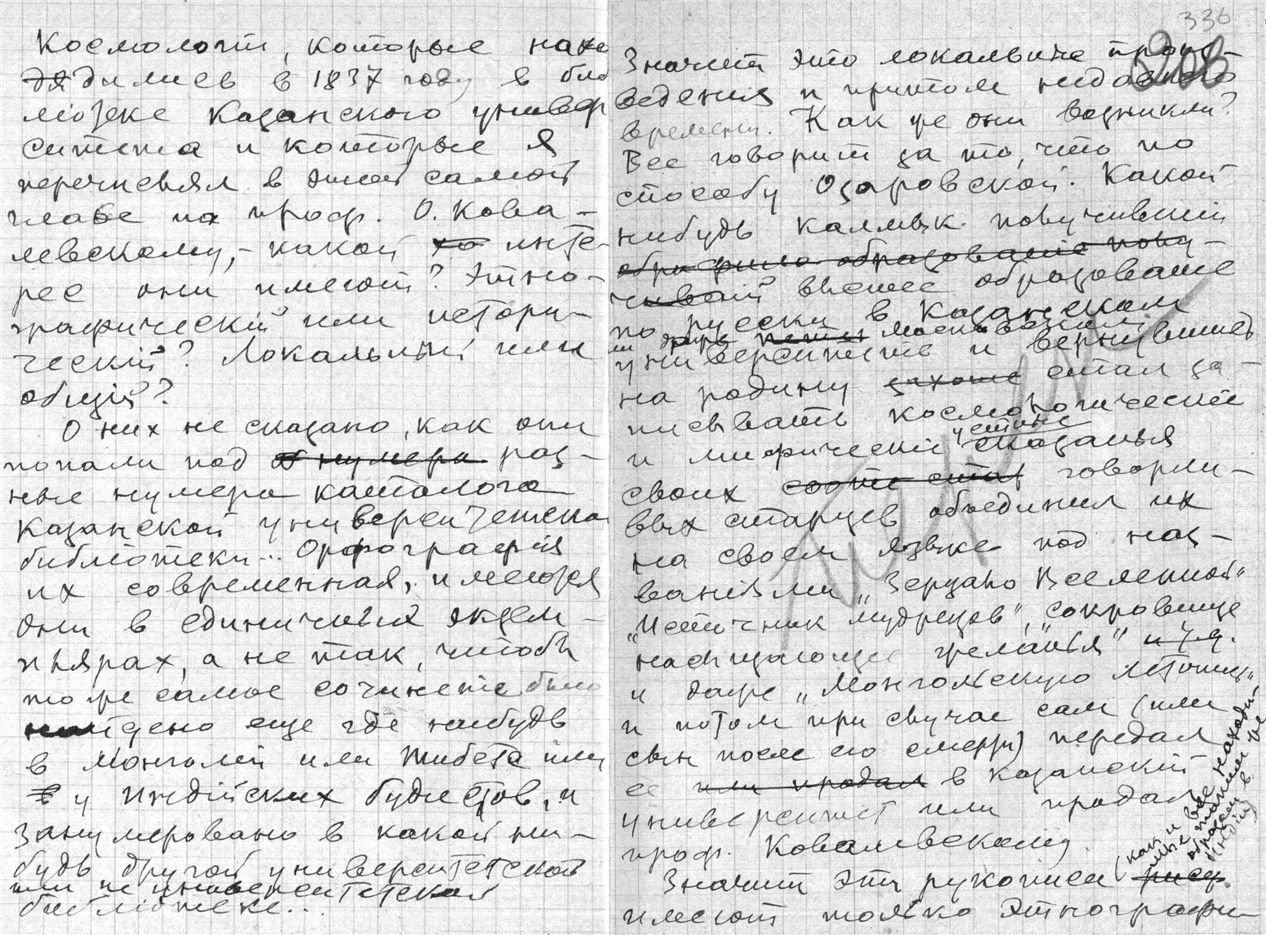 Космологіи, которые нахо
дились в 1837 году в биб
лиотеке Казанского универ
ситета и которые я
перечислял в этой самой
главе по проф. О. Кова-
левскому, - какой инте-
рес они имеют? Этно-
графическій или истори-
ческій? Локальный или
общій?
О них не сказано, как они
попали под раз-
ные нумера каталога
Казанской университетско
библіотеки... Орфографія
их современная, имеются
они в единичных экзем-
плярах, а не так, чтобы
то же самое сочиненіе было
найдено еще где нибудь
в Монголіи или Тибета или
у Индійских будистов, и
занумеровано в какой ни-
будь другой университетской
или не университетской
библіотеке...
336
208
Значит это локальные произ-
ведения и притом недавнего
времени. Как же они возникли?
Все говорит за то, что по
способу Озаровской. Какой
нибудь калмык получившій
образование полу-
чившій высшее образование
по русски в Казанском
или
университете и вернувшись
на родину стал за-
писывать космологическіе
и мифическіе сказанья
устные
своих говорли-
вых старцев объединил их
на своем языке под наз-
ваніями „Зерцало Вселенной"
„Источник мудрецов", „сокровище
насыщающее желанья" и т.д.
и даже „Монгольскую летопись"
и потом при случае сам (или
сын после его смерти) передал
ее или продал в Казанскій
университет или продал
проф. Ковалевскому.
Значит эти рукописи
(как и все находи-
мые таким же
образом в
Индіи)
имеют только этнографи-